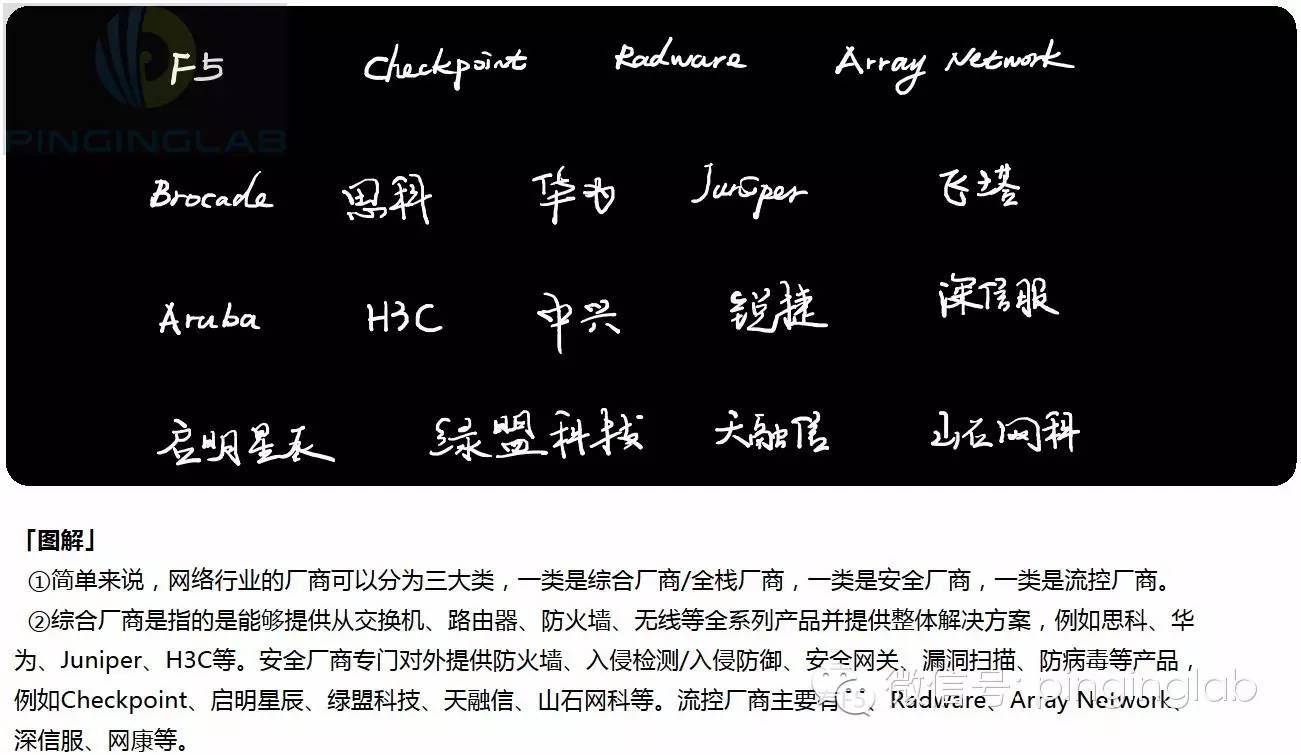 F5 Checkpoint Radware Array Network
PINGINGLAB
Brocade 思科 华为 Juniper 飞塔
Aruba H3C 中兴 锐捷 深信服
启明星辰 绿盟科技 天融信 山石网科
「图解」
①简单来说，网络行业的厂商可以分为三大类，一类是综合厂商/全栈厂商，一类是安全厂商，一类是流控厂商。
②综合厂商是指的是能够提供从交换机、路由器、防火墙、无线等全系列产品并提供整体解决方案，例如思科、华
为、Juniper、H3C等。安全厂商专门对外提供防火墙、入侵检测/入侵防御、安全网关、漏洞扫描、防病毒等产品，
例如Checkpoint、启明星辰、绿盟科技、天融信、山石网科等。流控厂商主要有F5、Radware、Array Network、
深信服、网康等。
微信号: pinginglab